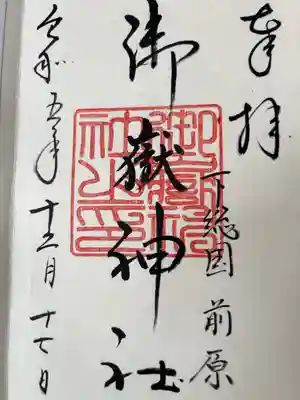 奉拝
下総国 前原
御嶽神社
令和五年 十二月 十七日
御嶽神
社之印